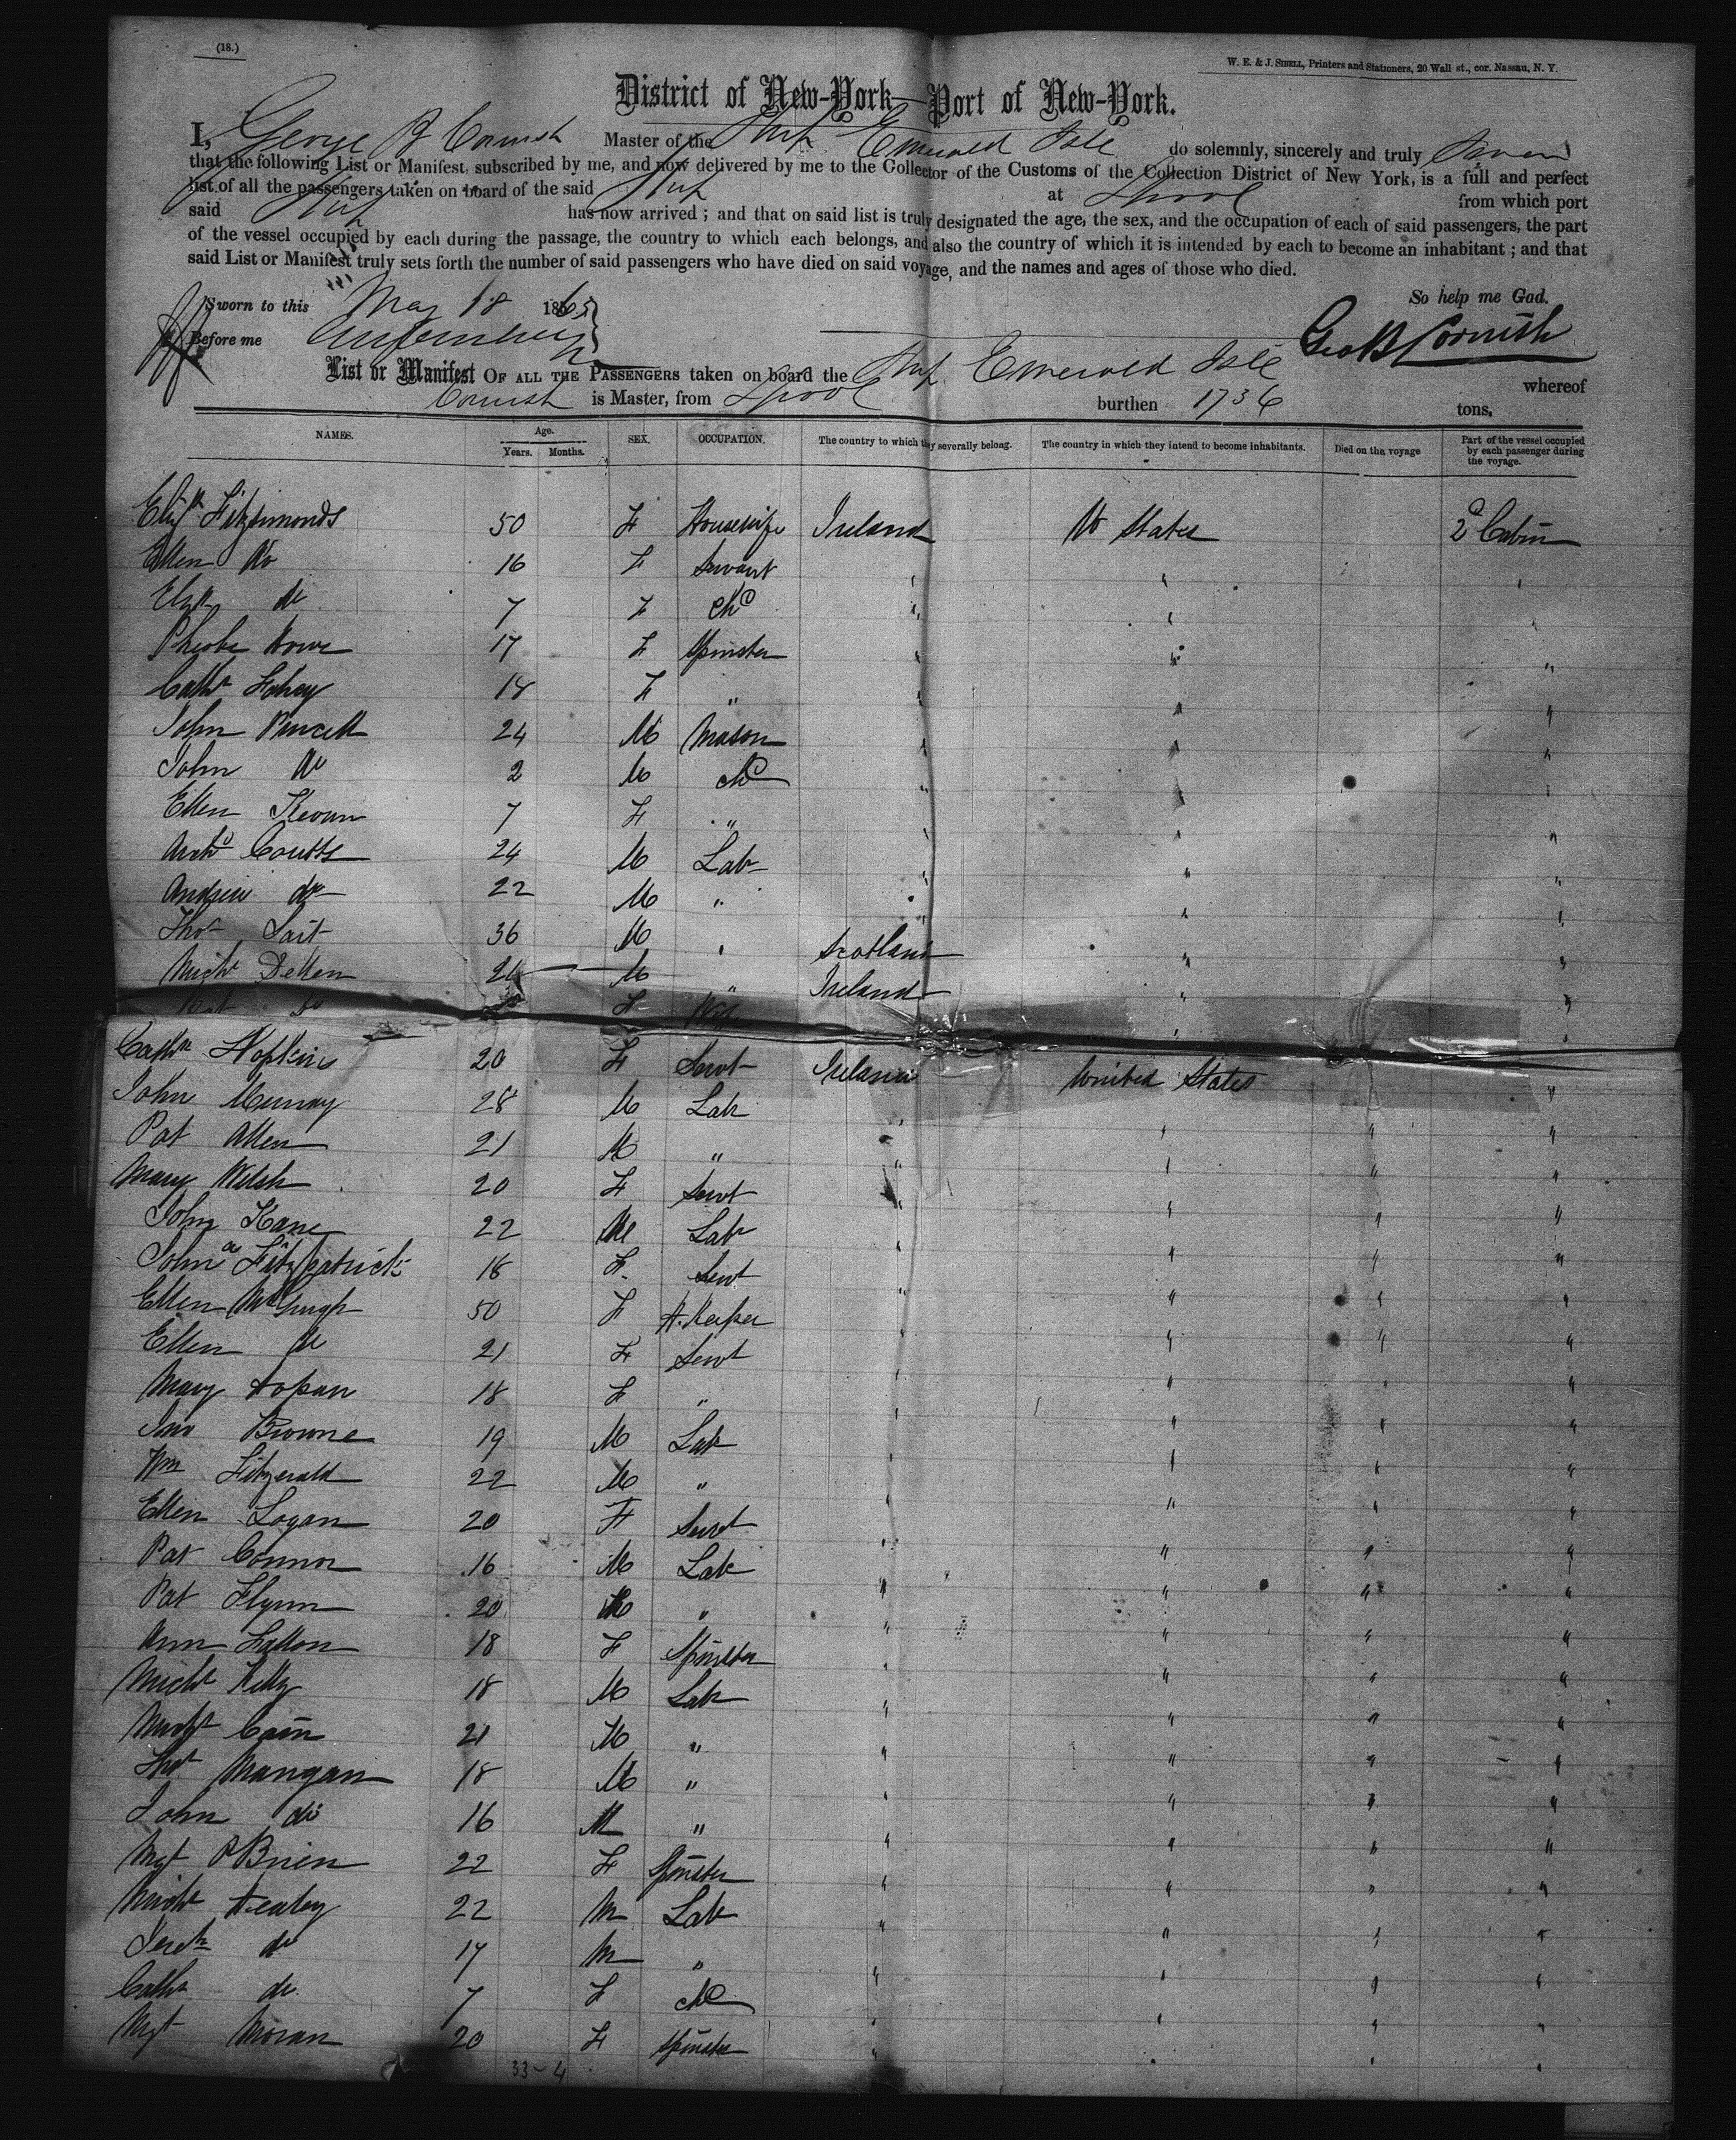 (18.)
W. E. & J. SIBELL, Printers and Stationers, 20 Wall st., cor. Nassau, N. Y.
District of New-York—Port of New-York.
I, George B Cornish Master of the Ship Emerald Isle do solemnly, sincerely and truly Swear
that the following List or Manifest, subscribed by me, and now delivered by me to the Collector of the Customs of the Collection District of New York, is a full and perfect
list of all the passengers taken on board of the said Ship at Lpool from which port
said Ship has now arrived; and that on said list is truly designated the age, the sex, and the occupation of each of said passengers, the part
of the vessel occupied by each during the passage, the country to which each belongs, and also the country of which it is intended by each to become an inhabitant; and that
said List or Manifest truly sets forth the number of said passengers who have died on said voyage, and the names and ages of those who died.
So help me God.
Sworn to this May 18 1865
Before me
Geo B Cornish
List or Manifest OF ALL THE PASSENGERS taken on board the Ship Emerald Isle whereof
Cornish is Master, from Lpool burthen 1736 tons,
NAMES. Age. Years. Months. SEX. OCCUPATION. The country to which they severally belong. The country in which they intend to become inhabitants. Died on the voyage Part of the vessel occupied by each passenger during the voyage.
Elizth Fitzsimonds 50 F Housewife Ireland U States 2d Cabin
Ellen Do 16 F Servant " " "
Elzth do 7 F Chd " " "
Pheobe Howe 17 F Spinster " " "
Cathe Fahey 18 F " " " "
John Purcell 24 M Mason " " "
John Do 2 M Chd " " "
Ellen Kevan 7 F " " " "
Archd Coutts 24 M Lab " " "
Andrew do 22 M " " " "
Thos Tait 36 M " Scotland " "
Michl Dellen 21 M " Ireland " "
Do F Wife " "
Cathn Hopkins 20 F Servt Ireland United States "
John Murray 28 M Lab " " " "
Pat Allen 21 M " " " " "
Mary Welsh 20 F Servt " " " "
John Kane 22 M Lab " " " "
Johna Fitzpatrick 18 F Servt " " " "
Ellen McHugh 50 F H. Keeper " " " "
Ellen do 21 F Servt " " " "
Mary Hopan 18 F " " " " "
Jno Browne 19 M Lab " " " "
Wm Fitzgerald 22 M " " " " "
Ellen Logan 20 F Servt " " " "
Pat Connor 16 M Lab " " " "
Pat Flynn 20 M " " " " "
Ann Fallon 18 F Spinster " " " "
Michl Kelly 18 M Lab " " " "
Michl Cain 21 M " " " " "
Thos Mangan 18 M " " " " "
John do 16 M " " " " "
Mgt OBrien 22 F Spinster " " " "
Michl Healey 22 M Lab " " " "
Jereh do 17 M " " " " "
Cathn do 7 F Chd " " " "
Mgt Moran 20 F Spinster " " " "
33-4